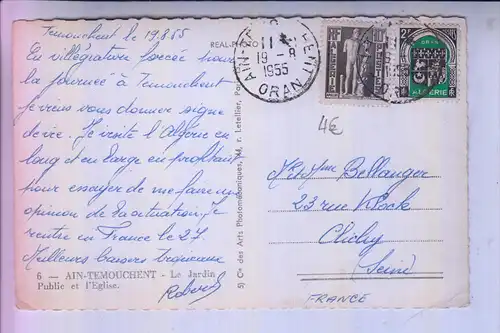 Temouchent le 19.8.55
En villégiature forcée pour
la journée à Temouchent
je viens vous donner signe
de vie. Je visite l'Algérie en
long et en large en profitant
pour essayer de me faire une
opinion de la situation. Je
rentre en France le 27
Meilleurs baisers
Robert
6 — AIN-TEMOUCHENT - Le Jardin
Public et l'Eglise.
REAL-PHOTO
Sté Cie des Arts Photomécaniques, M. r. Letellier,
11 H
19 - 8
1955
ORAN
ORAN
ALGERIE
4€
Mr et Mme Bellanger
23 rue Klock
Clichy
(Seine)
FRANCE